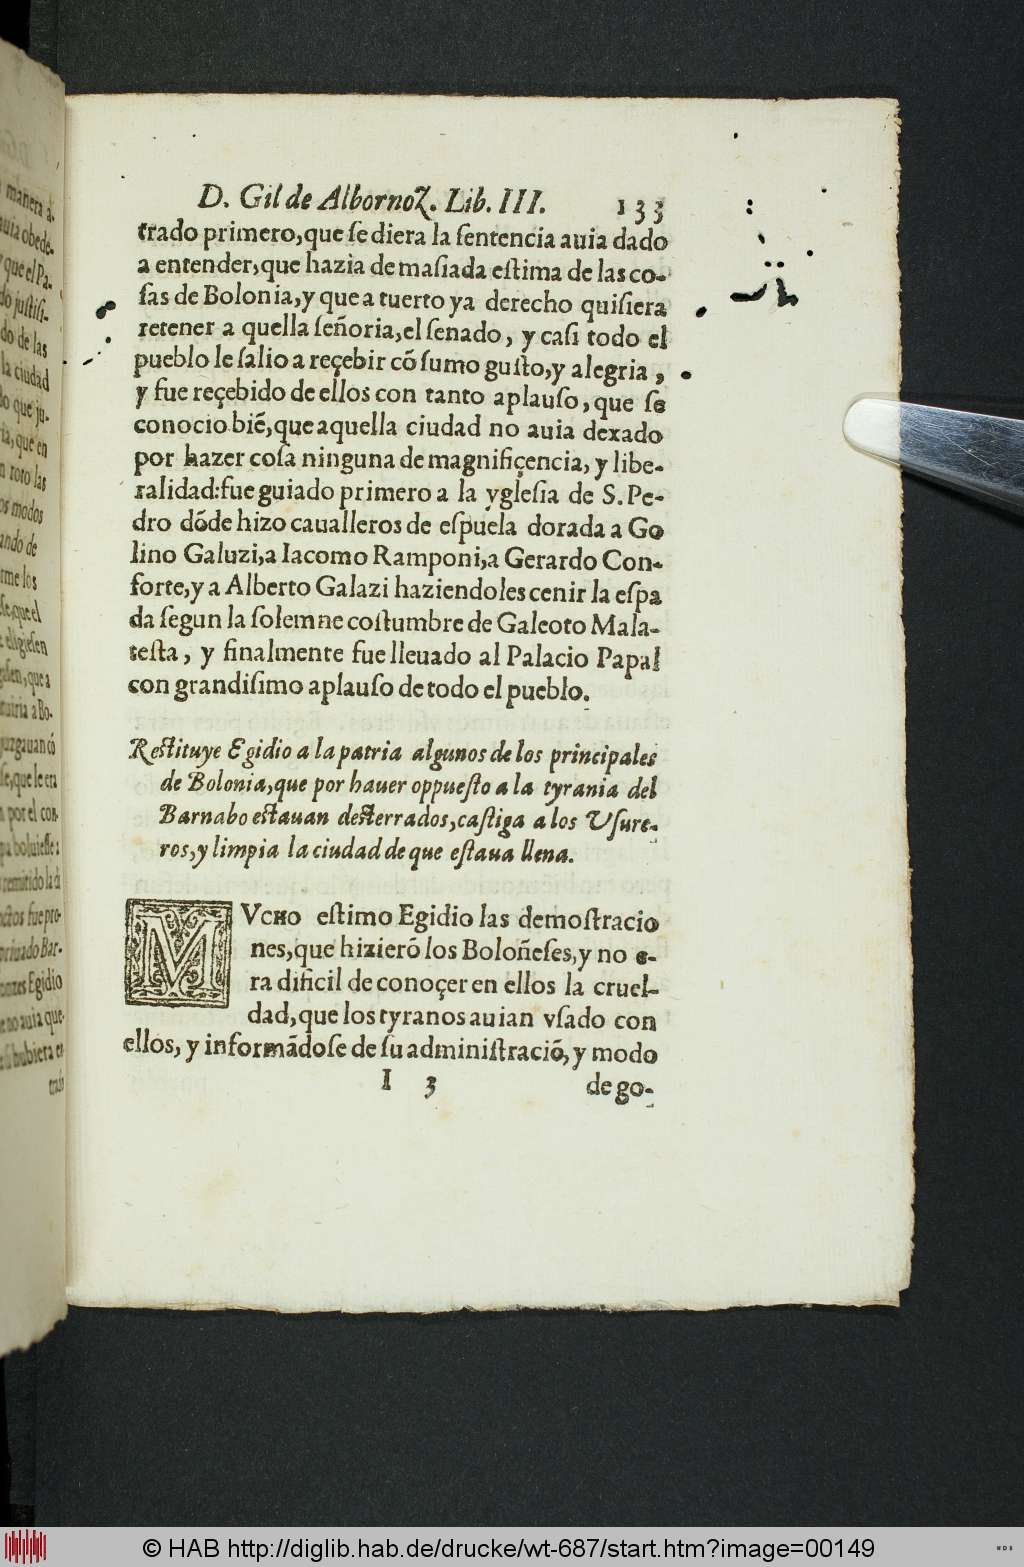 D. Gil de Albornoz. Lib. III. 133
trado primero, que se diera la sentencia auia dado
a entender, que hazia demasiada estima de las co-
sas de Bolonia, y que a tuerto ya derecho quisiera
retener a quella señoria, el senado, y casi todo el
pueblo le salio a reçebir cõ sumo gusto, y alegria,
y fue reçebido de ellos con tanto aplauso, que se
conocio biẽ, que aquella ciudad no auia dexado
por hazer cosa ninguna de magnifiçencia, y libe-
ralidad: fue guiado primero a la yglesia de S. Pe-
dro dõde hizo caualleros de espuela dorada a Go
lino Galuzi, a Iacomo Ramponi, a Gerardo Con-
forte, y a Alberto Galazi haziendoles cenir la espa
da segun la solemne costumbre de Galeoto Mala-
testa, y finalmente fue lleuado al Palacio Papal
con grandisimo aplauso de todo el pueblo.
Restituye Egidio a la patria algunos de los principales
de Bolonia, que por hauer oppuesto a la tyrania del
Barnabo estauan desterrados, castiga a los Vsure-
ros, y limpia la ciudad de que estaua llena.
MVCHO estimo Egidio las demostracio
nes, que hizierõ los Boloñeses, y no e-
ra dificil de conoçer en ellos la cruel-
dad, que los tyranos auian vsado con
ellos, y informãdose de su administraciõ, y modo
I 3 de go-
manera a-
auia obede-
y que el Pa-
do justifi-
do de las
la ciudad
que ju-
que en
roto las
modos
ando de
me los
que el
eligiesen
que a
a Bo-
juzgauan cõ
que le era
por el con-
boluiesse a
remitido la
fue pro-
priuado Bar-
Egidio
no auia que-
hubiera
© HAB http://diglib.hab.de/drucke/wt-687/start.htm?image=00149